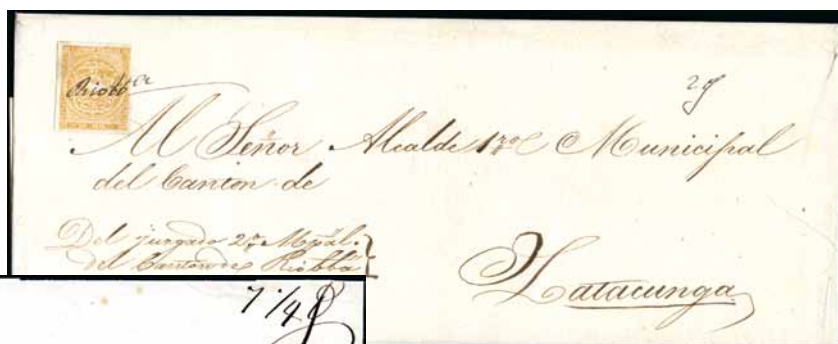 Riobba
Al Señor Alcalde 1ro Municipal
del Canton de
Del juzgado 2o Mpal.
del Canton de Riobba
Latacunga
7 1/4